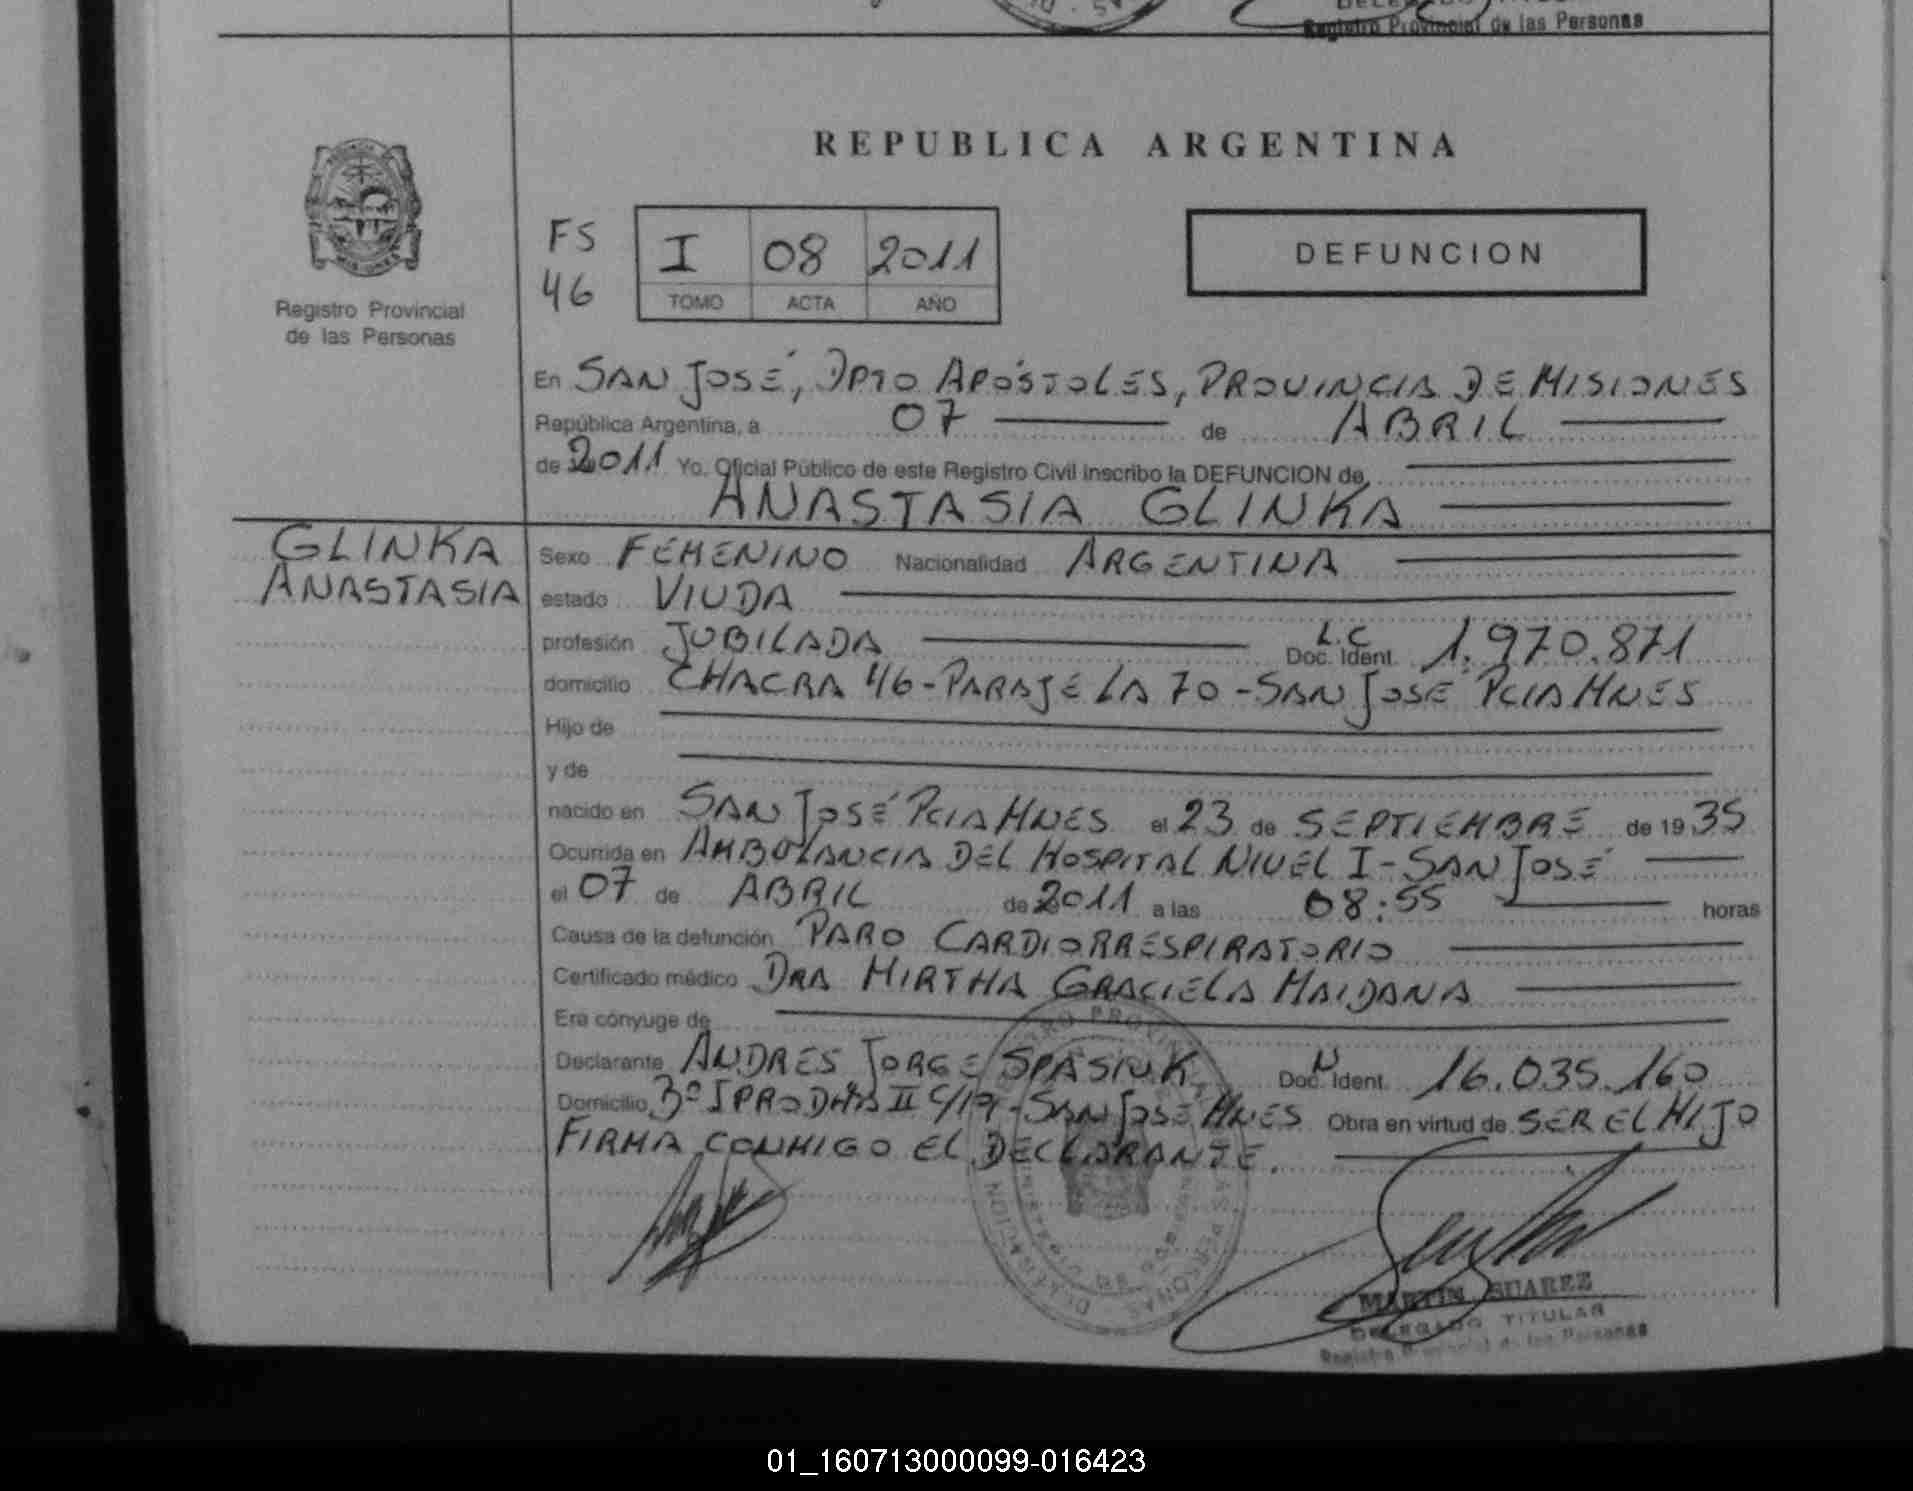 Registro Provincial de las Personas
REPUBLICA ARGENTINA
Registro Provincial
de las Personas
FS
46
I 08 2011
TOMO ACTA AÑO
DEFUNCION
En SAN JOSÉ, DPTO APÓSTOLES, PROVINCIA DE MISIONES
República Argentina, a 07 de ABRIL
de 2011 Yo. Oficial Público de este Registro Civil inscribo la DEFUNCION de
ANASTASIA GLINKA
GLINKA
ANASTASIA
Sexo FEMENINO Nacionalidad ARGENTINA
estado VIUDA
profesión JUBILADA L.C Doc. Ident. 1.970.871
domicilio CHACRA 46-PARAJE LA 70-SAN JOSÉ PCIA MNES
Hijo de
y de
nacido en SAN JOSÉ PCIA MNES el 23 de SEPTIEMBRE de 1935
Ocurrida en AMBULANCIA DEL HOSPITAL NIVEL I-SAN JOSÉ
el 07 de ABRIL de 2011 a las 08:55 horas
Causa de la defunción PARO CARDIORRESPIRATORIO
Certificado médico DRA MIRTHA GRACIELA MAIDANA
Era cónyuge de
Declarante ANDRES JORGE SPASIUK Doc. Ident. 16.035.160
Domicilio Bº IPRODHA II C/19-SAN JOSÉ MNES Obra en virtud de SER EL HIJO
FIRMA CONMIGO EL DECLARANTE.
MARTIN SUAREZ
DELEGADO TITULAR
Registro Provincial de las Personas
01_160713000099-016423